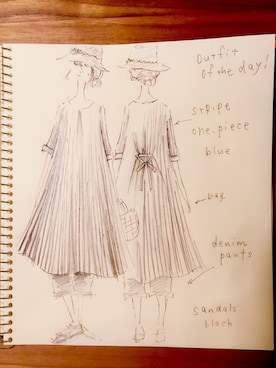 Outfit
Of the day!
stripe
one-piece
blue
bag
denim
pants
sandals
black